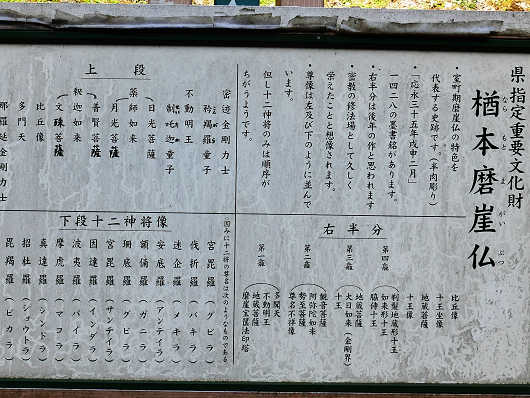 県指定重要文化財
楢本磨崖仏
ならもとまがいぶつ
・室町期磨崖仏の特色を
代表する史跡です。(半肉彫り)
・「応永三十五年戊申二月」
一四二八の墨書銘があります。
・右半分は後年の作と思われます
・密教の修法場として久しく
栄えたことと想像されます。
・尊像は左及び下のように並んで
います。
但し十二神将のみは順序が
ちがうようです。
上段
密迹金剛力士
矜羯羅童子
不動明王
制吒迦童子
日光菩薩
薬師如来
月光菩薩
普賢菩薩
釈迦如来
文殊菩薩
比丘像
多門天
那羅延金剛力士
右半分
比丘像
十王坐像
地蔵菩薩
十王像
第四龕
判官地蔵形十王
如来形十王
脇侍十王
第三龕
地蔵菩薩
大日如来(金剛界)
十王
第二龕
観音菩薩
阿弥陀如来
勢至菩薩
尊名不祥像
第一龕
多聞天
不動明王
地蔵菩薩
磨崖宝篋法印塔
下段十二神将像
(因みに十二神の尊名は次のようなものである。
宮毘羅(グビラ)
伐折羅(バキラ)
迷企羅(メキラ)
安底羅(アンテイラ)
額儞羅(ガニラ)
珊底羅(グビラ)
宮毘羅(サンテイラ)
因達羅(インダラ)
摩虎羅(マコラ)
波夷羅(バイラ)
真達羅(シンドラ)
招杜羅(ショウトラ)
毘羯羅(ビカラ)